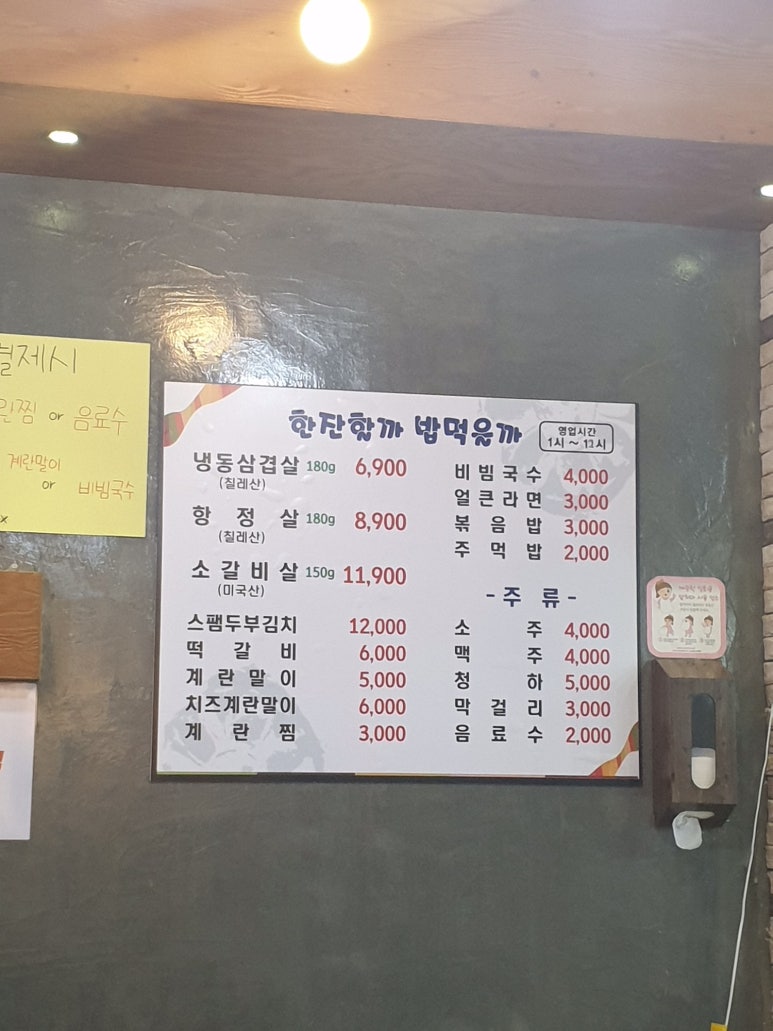 결제시
계란찜 or 음료수
계란말이
or 비빔국수
한잔할까 밥먹을까
영업시간
1시 ~
냉동삼겹살 180g 6,900
(칠레산)
항 정 살 180g 8,900
(칠레산)
소 갈 비 살 150g 11,900
(미국산)
스팸두부김치 12,000
떡 갈 비 6,000
계 란 말 이 5,000
치즈계란말이 6,000
계 란 찜 3,000
비 빔 국 수 4,000
얼 큰 라 면 3,000
볶 음 밥 3,000
주 먹 밥 2,000
- 주 류 -
소 주 4,000
맥 주 4,000
청 하 5,000
막 걸 리 3,000
음 료 수 2,000